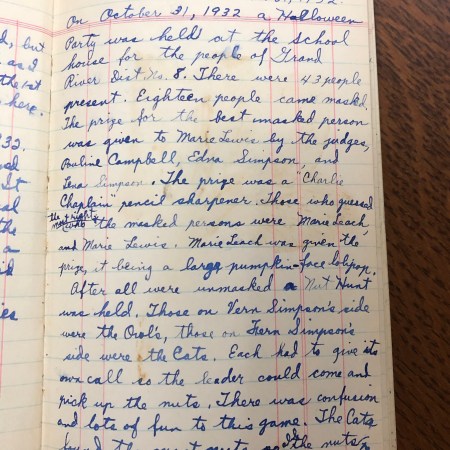 , 1932.
On October 31, 1932 a Halloween
Party was held at the school
house for the people of Grand
River Dist. No. 8. There were 43 people
present. Eighteen people came masked.
The prize for the best masked person
was given to Marie Lewis by the judges,
Pauline Campbell, Edna Simpson, and
Lena Simpson. The prize was a "Charlie
Chaplain" pencil sharpener. Those who guessed
the most right
who the masked persons were Marie Leach,
and Marie Lewis. Marie Leach was given the
prize, it being a large pumpkin-face lolipop.
After all were unmasked a Nut Hunt
was held. Those on Vern Simpson's side
were the Owl's, those on Fern Simpson's
side were the Cats. Each had to give its
own call so the leader could come and
pick up the nuts. There was confusion
and lots of fun to this game. The Cats
found the most nuts the nuts
d, but
as I
the 1st
here.
932.